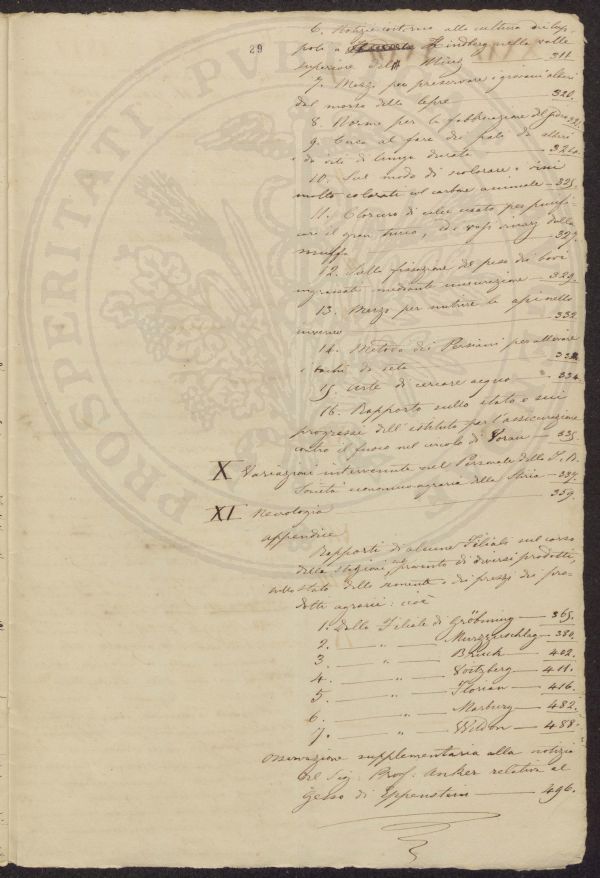 29
6. Notizie intorno alla cultura del lup-
polo a Kindberg nella valle
superiore della Mürz 311.
7. Mezzo per preservare i giovani alberi
dal morso della lepre 320.
8. Norme per la fabbricazione del
9. Circa al fare dei pali di alberi
e da viti di lunga durata 324.
10. Sul modo di scolorare i vini
molto colorati col carbone animale 325.
11. Cloruro di calce usato per purifi-
care il gran turco, ed i vasi vinarj dalla
muffa 327.
12. Sulla fissazione del peso dei bovi
ingrassati mediante misurazione 329.
13. Mezzo per nutrire le api nello
inverno 332.
14. Metodo dei Persiani per allevare
i bachi da seta 333.
15. Arte di cercare acqua 334.
16. Rapporto sullo stato e sui
progressi dell'istituto per l'assicurazione
contro il fuoco nel circolo di Vorau 335.
X Variazioni intervenute nel Personale della I. R.
Società economico agraria della Stiria 337.
XI Necrologia 339.
Appendice
Rapporti di alcune Filiali sul corso
delle stagioni, sul provento di diversi prodotti,
sullo stato delle sementi e dei prezzi dei pro-
dotti agrarii: cioè
1. Dalla Filiale di Gröbming 365.
2. " " Murzzuschlag 380.
3. " Bruck 402.
4. " Voitzberg 411.
5. " Florian 416.
6. " Marburg 482.
7. " Wildon 488.
Osservazione supplementaria alla notizia
del Sig. Prof. Anker relativa al
gesso di Eppenstein 496.
PROSPERITATI PUBLICAE